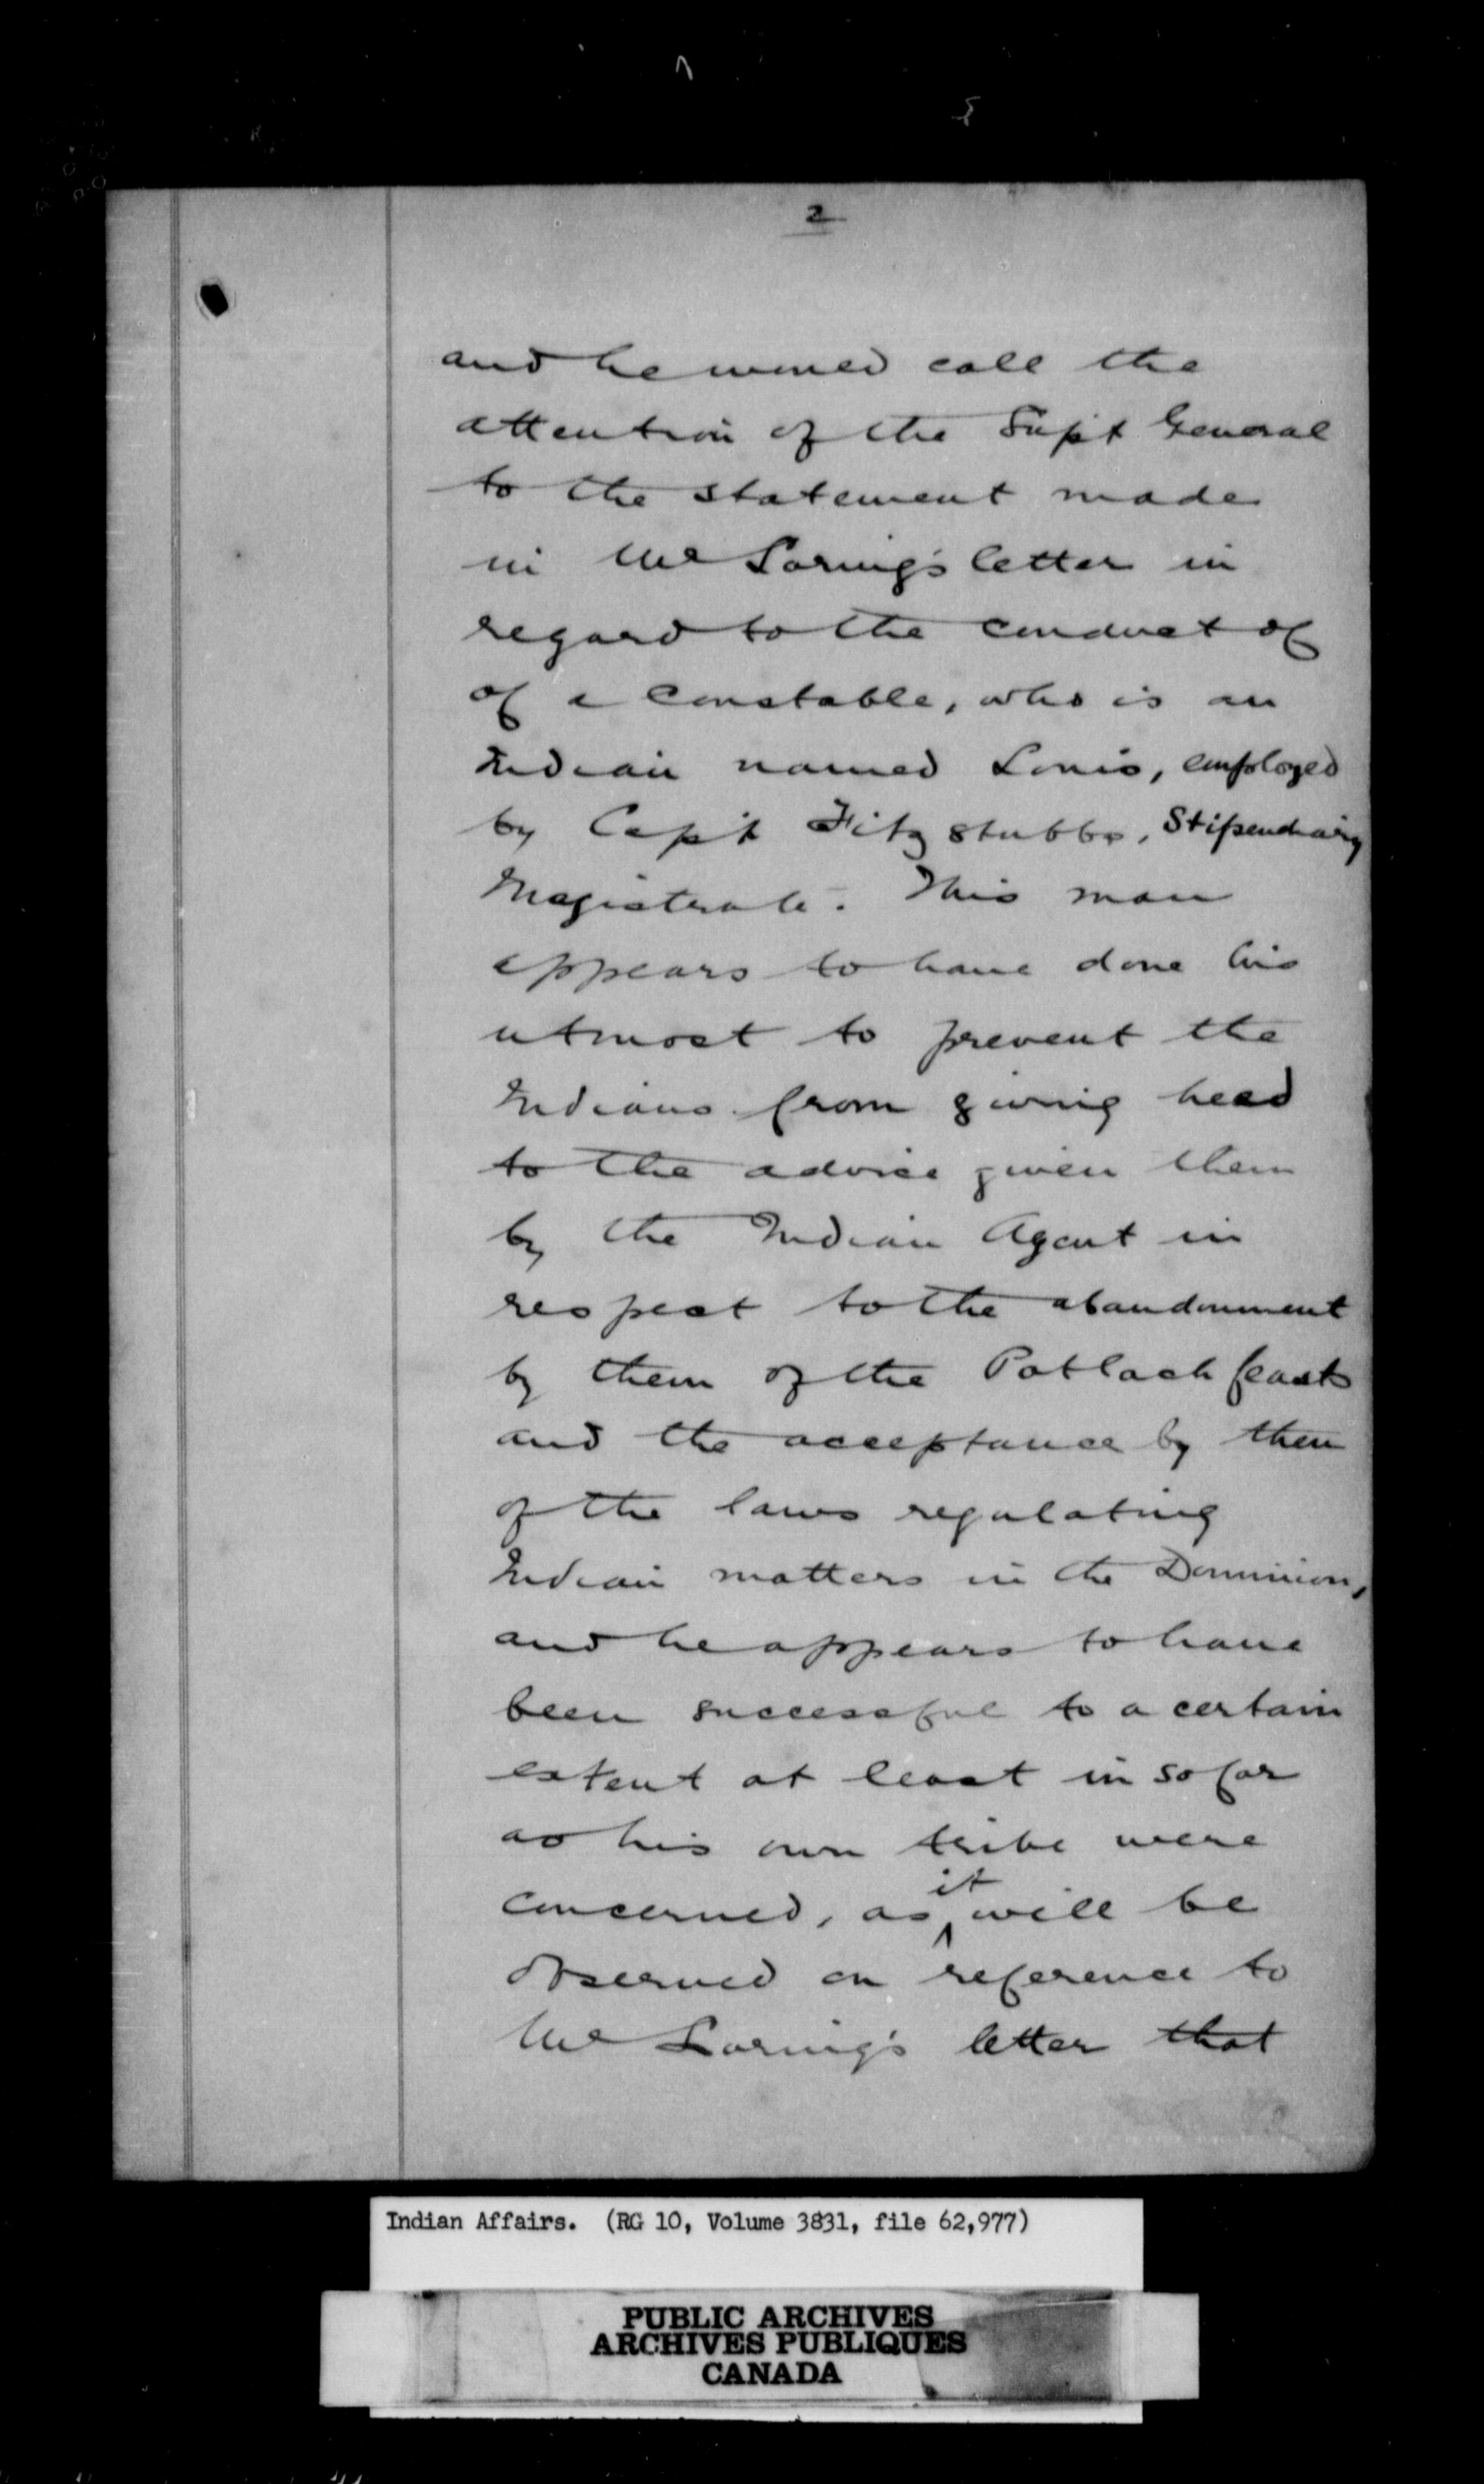 2
and he would call the
attention of the Supt General
to the statement made
in Mr Loring's letter in
regard to the conduct of
of a Constable, who is an
Indian named Louis, employed
by Capt Fitzstubbs, Stipendiary
Magistrate. This man
appears to have done his
utmost to prevent the
Indians from giving heed
to the advice given them
by the Indian Agent in
respect to the abandonment
by them of the Potlach feasts
and the acceptance by them
of the laws regulating
Indian matters in the Dominion,
and he appears to have
been successful to a certain
extent at least in so far
as his own tribe were
concerned, as it will be
observed on reference to
Mr Loring's letter that
Indian Affairs. (RG 10, Volume 3831, file 62,977)
PUBLIC ARCHIVES
ARCHIVES PUBLIQUES
CANADA